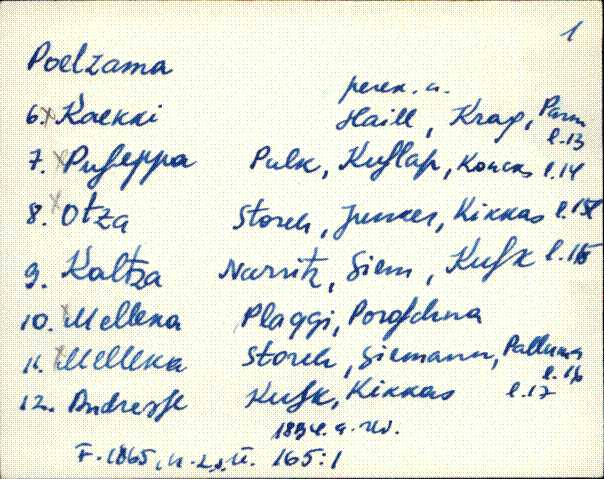 1
Poelzama
peren. a.
6. Kaekki Haill, Krag, Parm l.13
7. Puseppa Pulk, Kuslap, Koucks l.14
8. Otza Storch, Junker, Kikkas l.15
9. Kaltza Narritz, Siem, Kusk l.16
10. Mellena Plaggi, Poroschna
11. Melleka Storch, Siemann, Palluma l.16
12. Andresse Kusk, Kikkas l.17
F. 1865, n. 2, ü. 165:1